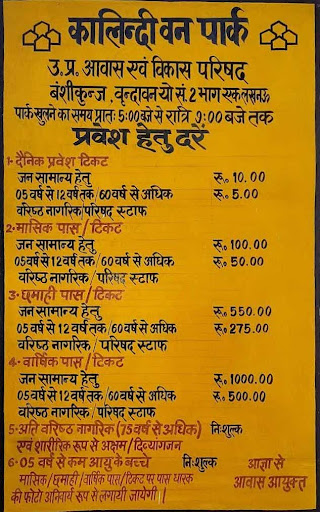 कालिन्दी वन पार्क
उ.प्र. आवास एवं विकास परिषद
बंशीकुन्ज, वृन्दावन यो सं. 2 भाग एक लखनऊ
पार्क खुलने का समय प्रातः 5:00 बजे से रात्रि 9:00 बजे तक
प्रवेश हेतु दरें
1- दैनिक प्रवेश टिकट
जन सामान्य हेतु रु. 10.00
05 वर्ष से 12 वर्ष तक/60 वर्ष से अधिक रु. 5.00
वरिष्ठ नागरिक/परिषद स्टाफ
2- मासिक पास/टिकट
जन सामान्य हेतु रु. 100.00
05 वर्ष से 12 वर्ष तक/60 वर्ष से अधिक रु. 50.00
वरिष्ठ नागरिक/परिषद स्टाफ
3- छमाही पास/टिकट
जन सामान्य हेतु रु. 550.00
05 वर्ष से 12 वर्ष तक/60 वर्ष से अधिक रु. 275.00
वरिष्ठ नागरिक/परिषद स्टाफ
4- वार्षिक पास/टिकट
जन सामान्य हेतु रु. 1000.00
05 वर्ष से 12 वर्ष तक/60 वर्ष से अधिक रु. 500.00
वरिष्ठ नागरिक/परिषद स्टाफ
5- अति वरिष्ठ नागरिक (75 वर्ष से अधिक) निःशुल्क
एवं शारीरिक रूप से अक्षम/दिव्यांगजन
6- 05 वर्ष से कम आयु के बच्चे निःशुल्क
मासिक/छमाही/वार्षिक पास/टिकट पर पास धारक
की फोटो अनिवार्य रूप से लगायी जायेगी।
आज्ञा से
आवास आयुक्त